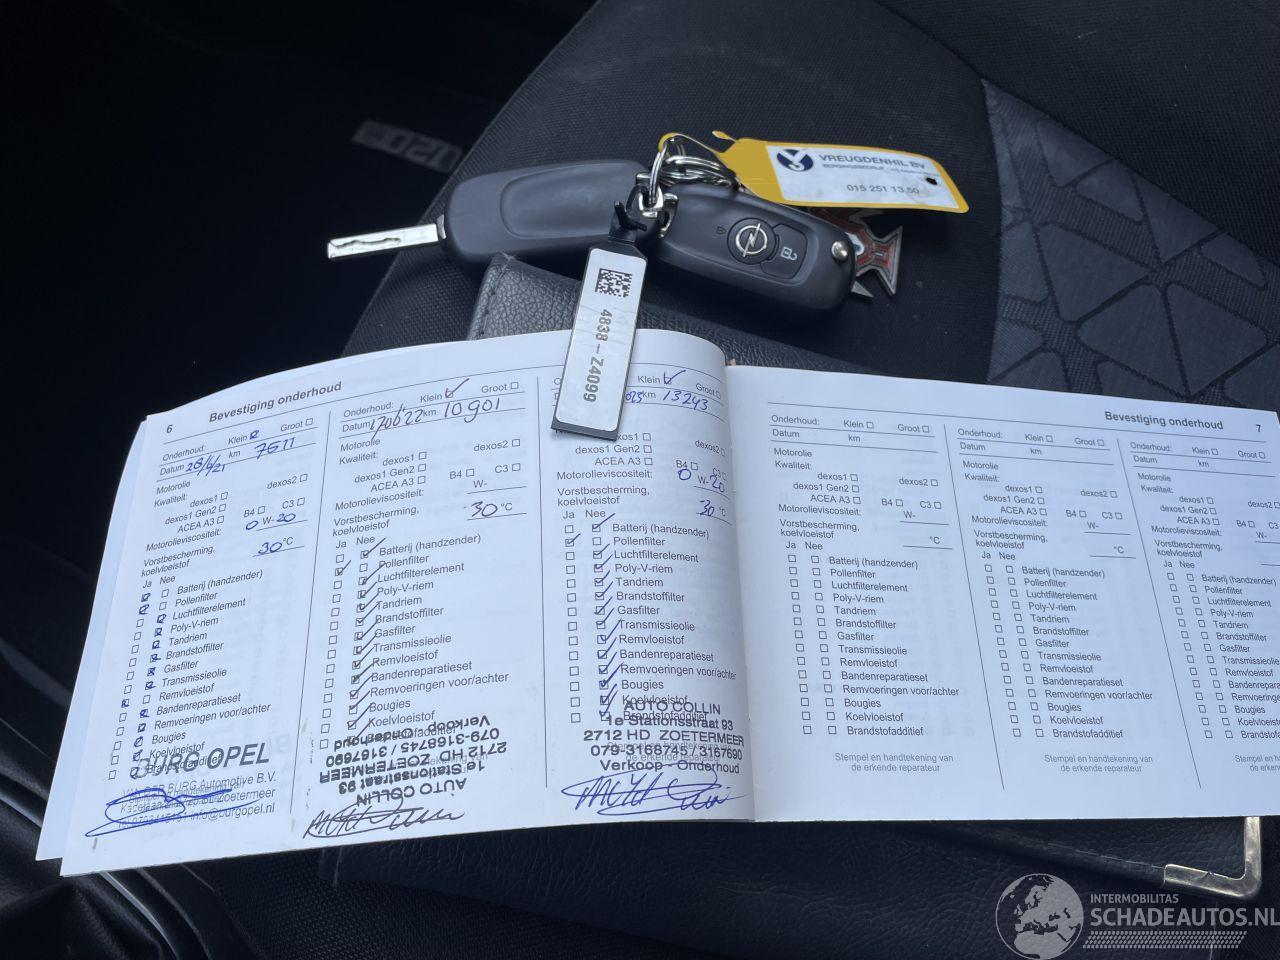 VREUGDENHIL BV
015 251 13.50
4838-Z4099
6
Bevestiging onderhoud
Onderhoud: Klein Groot
Datum 28/4/21 km 7511
Motorolie
Kwaliteit:
dexos1 dexos2
dexos1 Gen2
ACEA A3 B4 C3
Motorolieviscositeit: 0 W-20
Vorstbescherming,
koelvloeistof 30 °C
Ja Nee
Batterij (handzender)
Pollenfilter
Luchtfilterelement
Poly-V-riem
Tandriem
Brandstoffilter
Gasfilter
Transmissieolie
Remvloeistof
Bandenreparatieset
Remvoeringen voor/achter
Bougies
Koelvloeistof
Brandstofadditief
BURG OPEL
VAN DER BURG Automotive B.V.
Zoetermeer
info@burgopel.nl
Onderhoud: Klein Groot
Datum km 10901
Motorolie
Kwaliteit:
dexos1 dexos2
dexos1 Gen2
ACEA A3 B4 C3
Motorolieviscositeit: W-
Vorstbescherming,
koelvloeistof 30 °C
Ja Nee
Batterij (handzender)
Pollenfilter
Luchtfilterelement
Poly-V-riem
Tandriem
Brandstoffilter
Gasfilter
Transmissieolie
Remvloeistof
Bandenreparatieset
Remvoeringen voor/achter
Bougies
Koelvloeistof
Brandstofadditief
AUTO COLLIN
1e Stationsstraat 93
2712 HD ZOETERMEER
079-3168745 / 3167690
Verkoop - Onderhoud
Klein Groot
km 13243
dexos1 dexos2
dexos1 Gen2
ACEA A3 B4 C3
Motorolieviscositeit: 0 W-20
Vorstbescherming,
koelvloeistof -30 °C
Ja Nee
Batterij (handzender)
Pollenfilter
Luchtfilterelement
Poly-V-riem
Tandriem
Brandstoffilter
Gasfilter
Transmissieolie
Remvloeistof
Bandenreparatieset
Remvoeringen voor/achter
Bougies
Koelvloeistof
Brandstofadditief
AUTO COLLIN
1e Stationsstraat 93
2712 HD ZOETERMEER
079-3168745 / 3167690
Verkoop - Onderhoud
Bevestiging onderhoud 7
Onderhoud: Klein Groot
Datum km
Motorolie
Kwaliteit:
dexos1 dexos2
dexos1 Gen2
ACEA A3 B4 C3
Motorolieviscositeit: W-
Vorstbescherming,
koelvloeistof °C
Ja Nee
Batterij (handzender)
Pollenfilter
Luchtfilterelement
Poly-V-riem
Tandriem
Brandstoffilter
Gasfilter
Transmissieolie
Remvloeistof
Bandenreparatieset
Remvoeringen voor/achter
Bougies
Koelvloeistof
Brandstofadditief
Stempel en handtekening van
de erkende reparateur
Onderhoud: Klein Groot
Datum km
Motorolie
Kwaliteit:
dexos1 dexos2
dexos1 Gen2
ACEA A3 B4 C3
Motorolieviscositeit: W-
Vorstbescherming,
koelvloeistof °C
Ja Nee
Batterij (handzender)
Pollenfilter
Luchtfilterelement
Poly-V-riem
Tandriem
Brandstoffilter
Gasfilter
Transmissieolie
Remvloeistof
Bandenreparatieset
Remvoeringen voor/achter
Bougies
Koelvloeistof
Brandstofadditief
Stempel en handtekening van
de erkende reparateur
Onderhoud: Klein Groot
Datum km
Motorolie
Kwaliteit:
dexos1
dexos1 Gen2
ACEA A3 B4
Motorolieviscositeit:
Vorstbescherming,
koelvloeistof
Ja Nee
Batterij (handzender)
Pollenfilter
Luchtfilterelement
Poly-V-riem
Tandriem
Brandstoffilter
Gasfilter
Transmissieolie
Remvloeistof
Bandenrepara
Remvoeringen
Bougies
Koelvloeistof
Brandstofadditief
Stempel en handtekening van
de erkende reparateur
INTERMOBILITAS
SCHADEAUTOS.NL